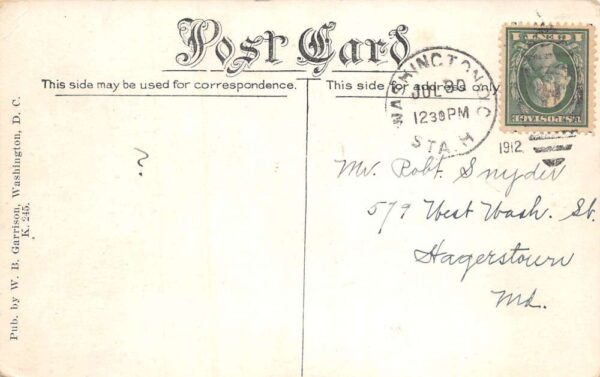 Post Card
This side may be used for correspondence.
This side for address only.
WASHINGTON, D.C.
JUL 30
12 30 PM
STA. H
1912
1 CENT 1
U.S. POSTAGE
?
Mr. Robt. Snyder
579 West Wash. St.
Hagerstown
Md.
Pub. by W. B. Garrison, Washington, D. C.
K. 245.